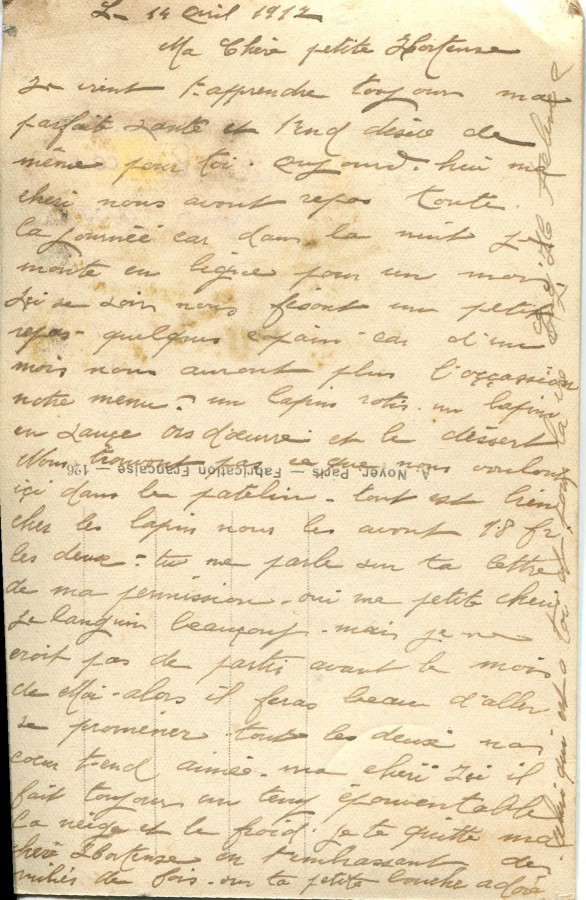 Le 14 avril 1917
Ma Chère petite Hortense
Je vient t'apprendre toujour ma
parfait santé et t'end désire de
même pour toi. aujourd'hui ma
cheri nous avont repos toute
la journée car dans la nuit je
monte en ligne pour un mois
Ici se soir nous fesont un petit
repas quelques copain car d'un
mois nous auront plus l'occassion
notre menu = un lapin rotis. un lapin
en sauce ors d'œuvre et le dessert
Nous trouvont pas ce que nous voulont
içi dans le patelin - tout est bien
cher les lapin nous les avont 18 fr
les deux = tu me parle sur ta lettre
de ma permission - oui ma petite cheri
je languin beauçoup - mais je ne
croit pas de partir avant le mois
de Mai - alors il feras beau d'aller
se promener toute les deux nos
cœur t-end aimée. ma cheri Ici il
fait toujour un temp épouventable
La neige et le froid. je te quitte ma
chère Hortense en t'embrassant des
miliés de fois - sur ta petite bouche adoré
celui qui est a toi et pour la vie
A. Noyer, Paris — Fabrication Française — 126